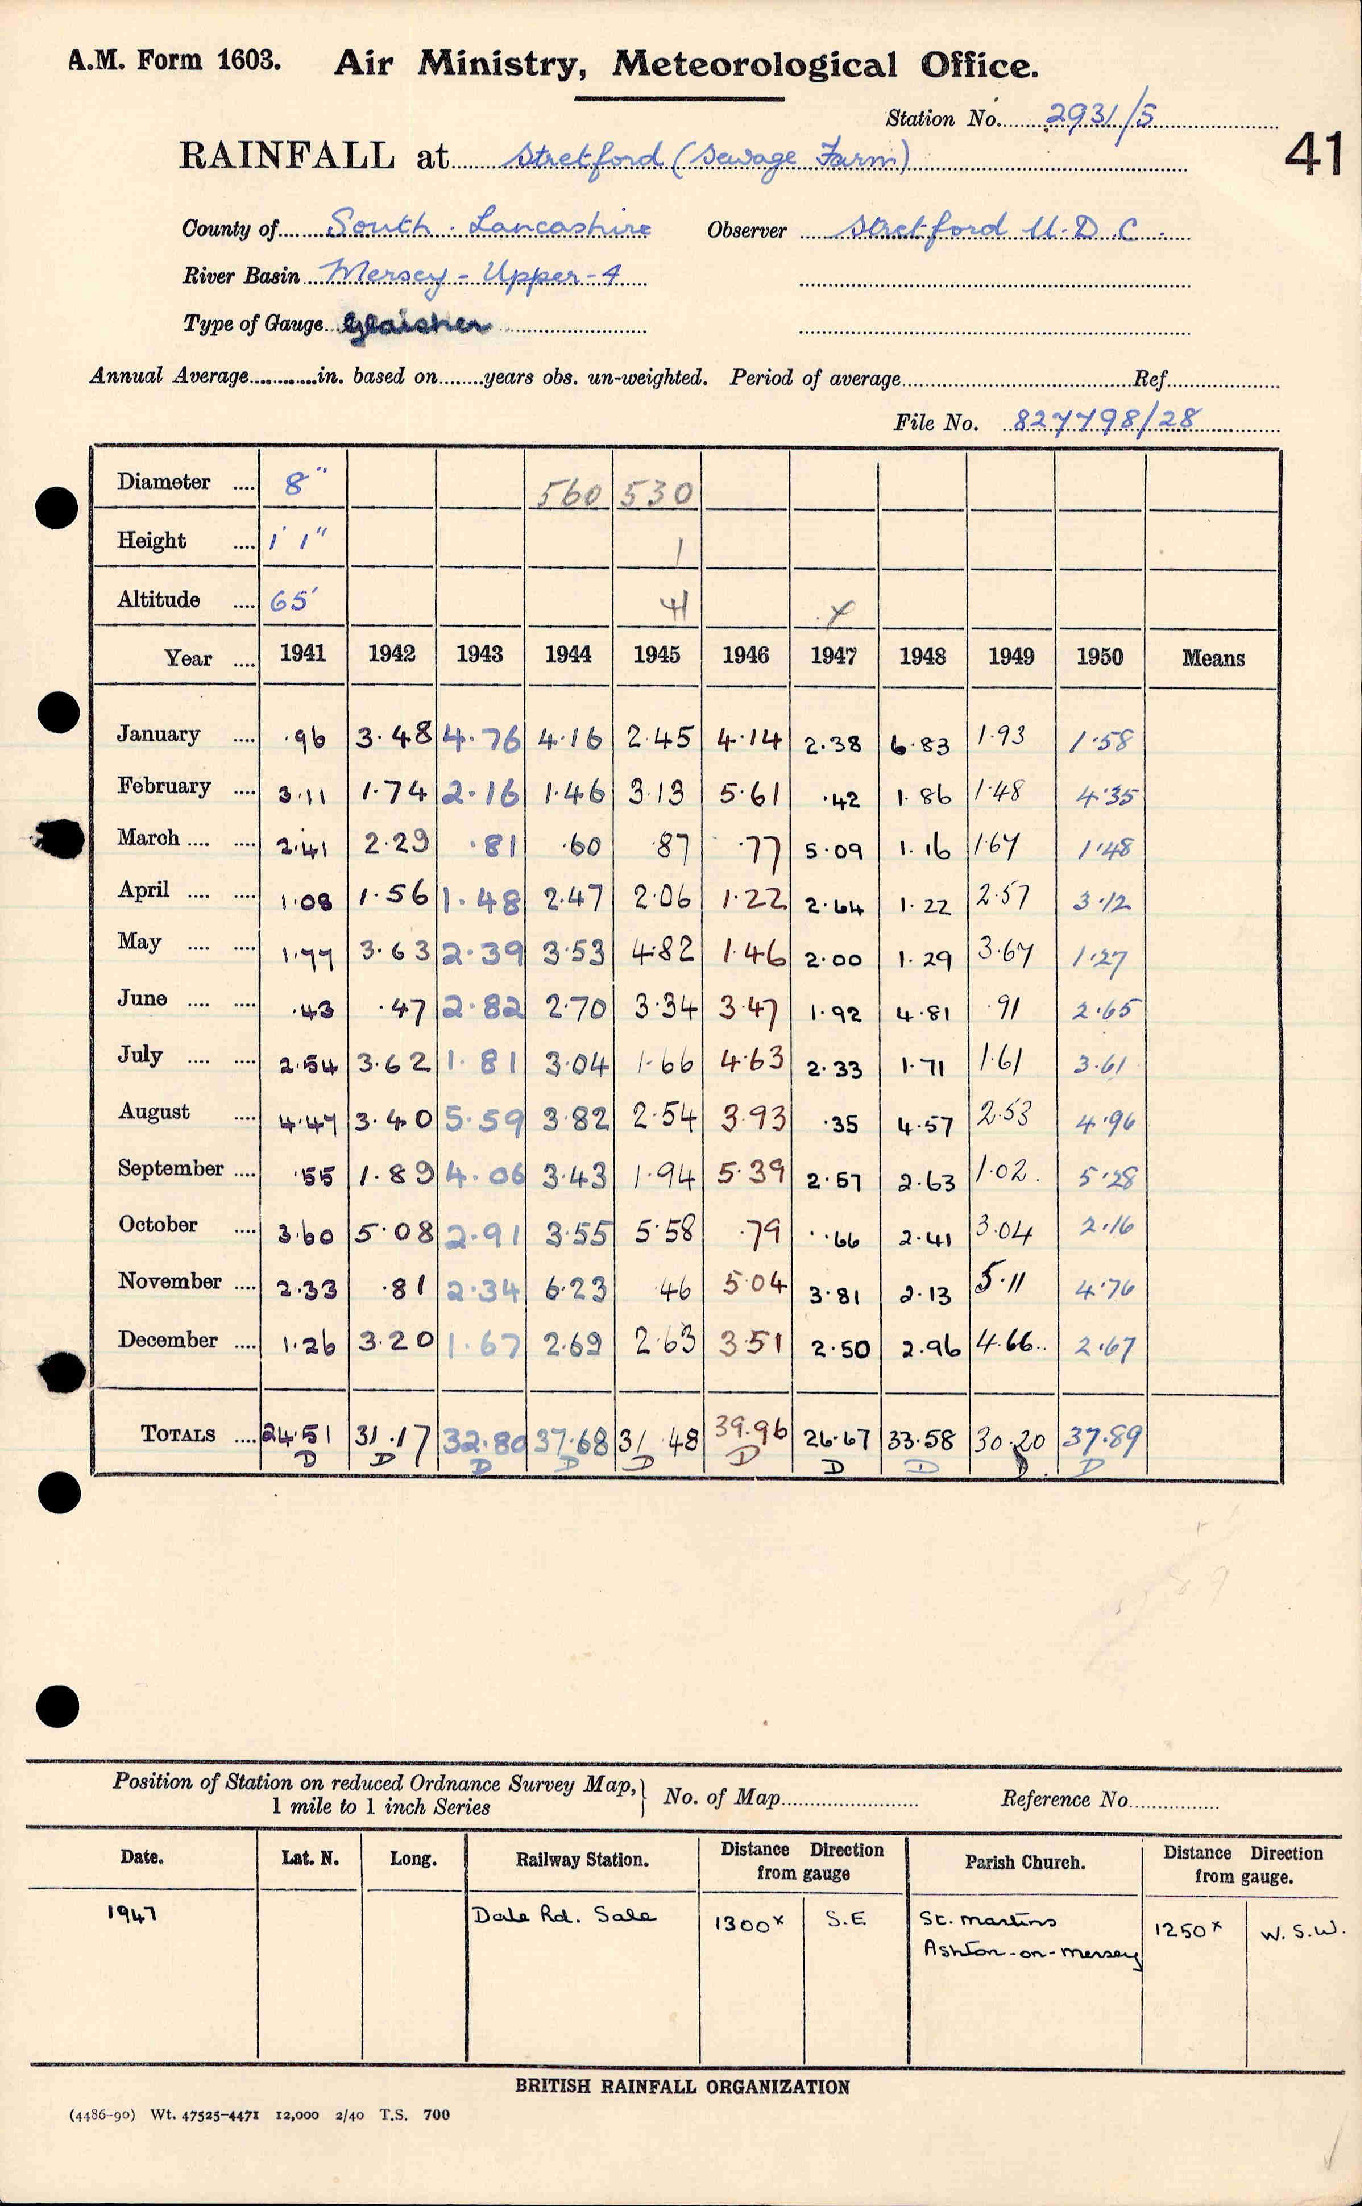 A.M. Form 1603. Air Ministry, Meteorological Office.
Station No. 2931/5
41
RAINFALL at Stretford (Sewage Farm)
County of South. Lancashire Observer Stretford U.D.C.
River Basin Mersey - Upper - 4
Type of Gauge Glaisher
Annual Average in. based on years obs. un-weighted. Period of average Ref.
File No. 827798/28
Diameter 8" 560 530
Height 1' 1" 1
Altitude 65'
Year 1941 1942 1943 1944 1945 1946 1947 1948 1949 1950 Means
January .96 3.48 4.76 4.16 2.45 4.14 2.38 6.83 1.93 1.58
February 3.11 1.74 2.16 1.46 3.13 5.61 .42 1.86 1.48 4.35
March 2.41 2.29 .81 .60 .87 .77 5.09 1.16 1.67 1.48
April 1.08 1.56 1.48 2.47 2.06 1.22 2.64 1.22 2.57 3.12
May 1.77 3.63 2.39 3.53 4.82 1.46 2.00 1.29 3.67 1.27
June .43 .47 2.82 2.70 3.34 3.47 1.92 4.81 .91 2.65
July 2.54 3.62 1.81 3.04 1.66 4.63 2.33 1.71 1.61 3.61
August 4.47 3.40 5.59 3.82 2.54 3.93 .35 4.57 2.53 4.96
September .55 1.89 4.06 3.43 1.94 5.39 2.57 2.63 1.02 5.28
October 3.60 5.08 2.91 3.55 5.58 .79 .66 2.41 3.04 2.16
November 2.33 .81 2.34 6.23 .46 5.04 3.81 2.13 5.11 4.76
December 1.26 3.20 1.67 2.69 2.63 3.51 2.50 2.96 4.66 2.67
TOTALS 24.51 31.17 32.80 37.68 31.48 39.96 26.67 33.58 30.20 37.89
D D D D D D D D D D
Position of Station on reduced Ordnance Survey Map, 1 mile to 1 inch Series } No. of Map Reference No.
Date. Lat. N. Long. Railway Station. Distance Direction from gauge Parish Church. Distance Direction from gauge.
1947 Dale Rd. Sale 1300x S.E St. Martins Ashton-on-Mersey 1250x W.S.W.
BRITISH RAINFALL ORGANIZATION
(4486-90) Wt. 47525-4471 12,000 2/40 T.S. 700